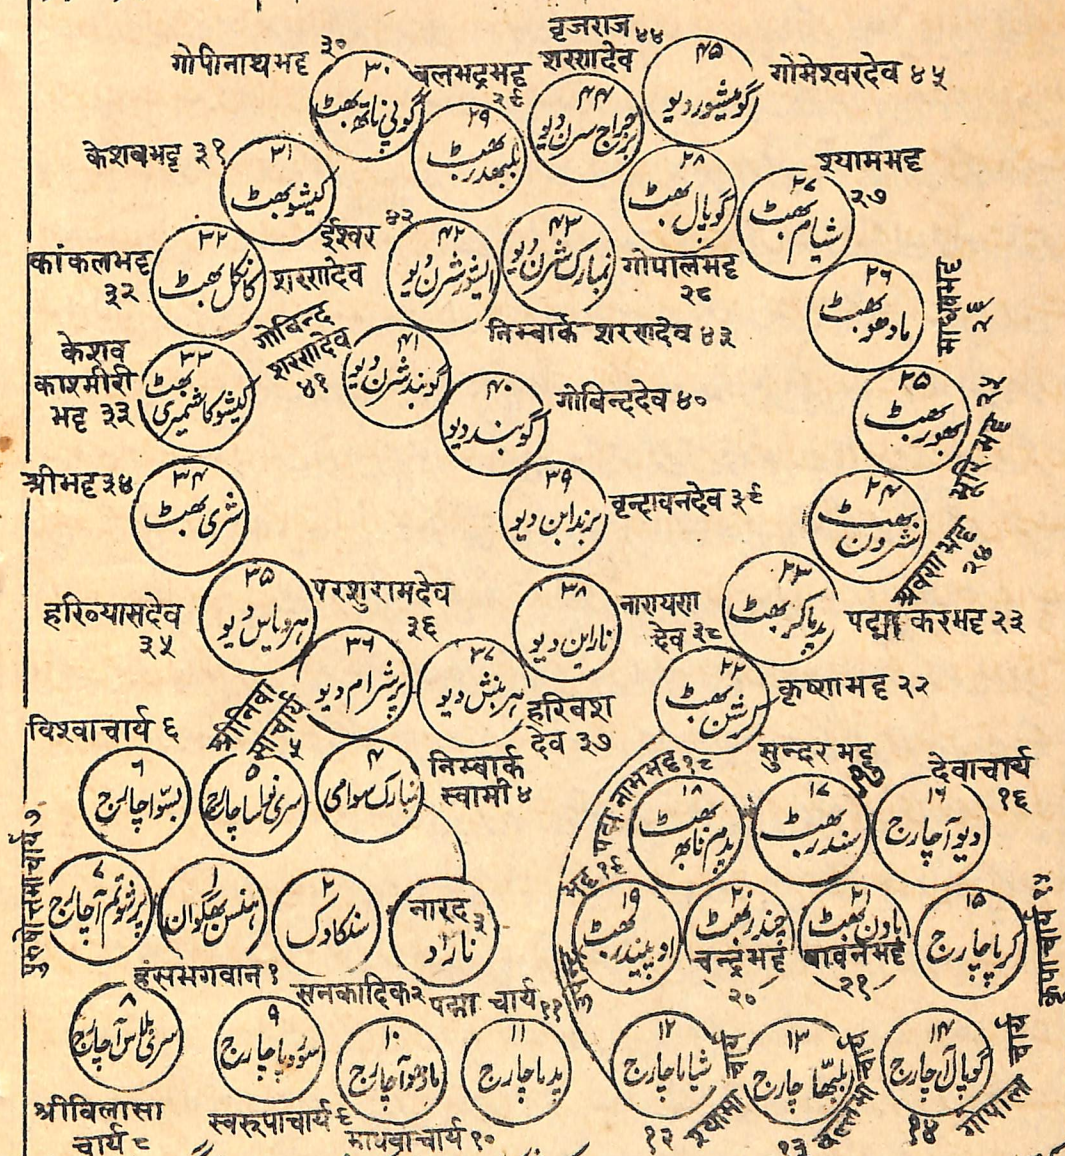 वृजराज ४४
शरणदेव
गोपीनाथ भट्ट ३०
۳۰
گوپی ناتھ بھٹ
बलभद्र भट्ट
२९
۲۹
بلبھدر بھٹ
۴۴
برجراج سرن دیو
۴۵
گومیشور دیو
गोमेश्वरदेव ४५
केशवभट्ट ३१
۳۱
کیشو بھٹ
۲۸
گوپال بھٹ
श्यामभट्ट
२७
۲۷
شیام بھٹ
कांकलभट्ट
३२
۳۲
کانکل بھٹ
ईश्वर ४२
शरणदेव
۴۲
ایشور شرن دیو
۴۳
نمبارک شرن دیو
गोपालभट्ट
२८
निम्बार्क शरणदेव ४३
۲۶
مادھو بھٹ
माधवभट्ट
२६
केशव
काश्मीरी
भट्ट ३३
۳۳
کیشو کاشمیری بھٹ
गोबिन्द
शरणदेव
४१
۴۱
گوبند شرن دیو
۴۰
گوبند دیو
गोबिन्ददेव ४०
۲۵
بھور بھٹ
भूरि भट्ट २५
श्रीभट्ट ३४
۳۴
شری بھٹ
۳۹
برندابن دیو
वृन्दावनदेव ३९
۲۴
شرون بھٹ
श्रवणभट्ट
२४
हरिव्यासदेव
३५
۳۵
ہرویاس دیو
परशुरामदेव
३६
۳۶
پرشرام دیو
۳۷
ہربنش دیو
हरिवंश
देव ३७
۳۸
ناراین دیو
नारायण
देव ३८
۲۳
پدماکر بھٹ
पद्माकरभट्ट २३
۲۲
کرشن بھٹ
कृष्णभट्ट २२
विश्वाचार्य ६
۶
بسوآچارج
श्रीनिवा
साचार्य
५
۵
۴
نمبارک سوامی
निम्बार्क
स्वामी ४
पद्मनाभभट्ट १८
۱۸
پدم نابھ بھٹ
सुन्दर भट्ट
१७
۱۷
سندر بھٹ
देवाचार्य
१६
۱۶
دیوآچارج
पुरुषोत्तमाचार्य ७
۷
پرشوتم آچارج
۱
ہنس بھگوان
हंसभगवान १
۲
سنکادک
सनकादिक २
नारद ३
نارد
उपेन्द्र भट्ट १९
۱۹
اوپیندر بھٹ
۲۰
چندر بھٹ
चन्द्रभट्ट
२०
۲۱
باون بھٹ
बावनभट्ट
२१
۱۵
کرپاچارج
कृपाचार्य १५
۸
سری بلاس آچارج
श्रीविलासा
चार्य ८
۹
سروپاچارج
स्वरूपाचार्य ९
۱۰
مادھوآچارج
माधवाचार्य १०
पद्मा चार्य ११
۱۱
پدماچارج
۱۲
شیاماچارج
१२ श्यामा चार्य
۱۳
بلبھاچارج
१३ वल्लभा चार्य
۱۴
گوپال آچارج
१४ गोपाला चार्य